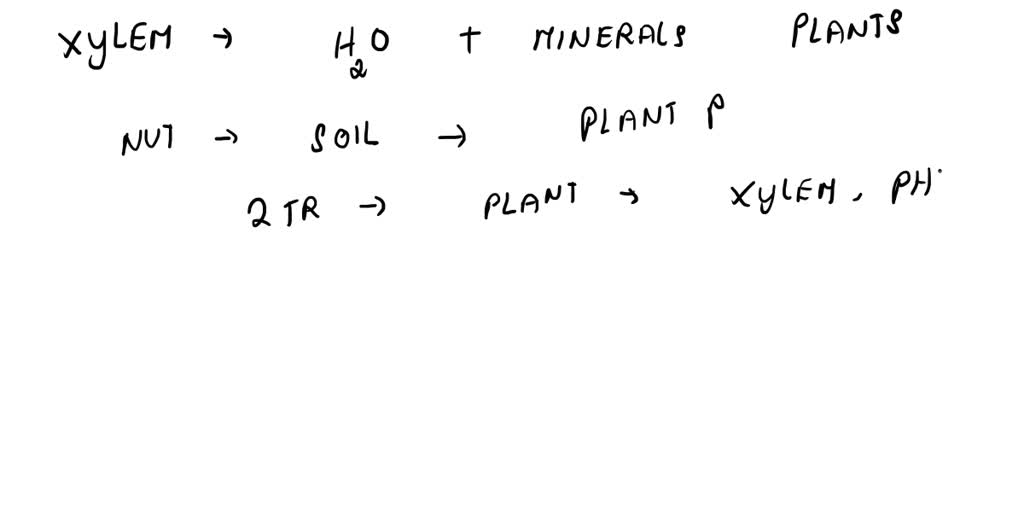 XYLEM → H₂O + MINERALS PLANTS
NUT → SOIL → PLANT P
2 TR → PLANT → XYLEM, PH